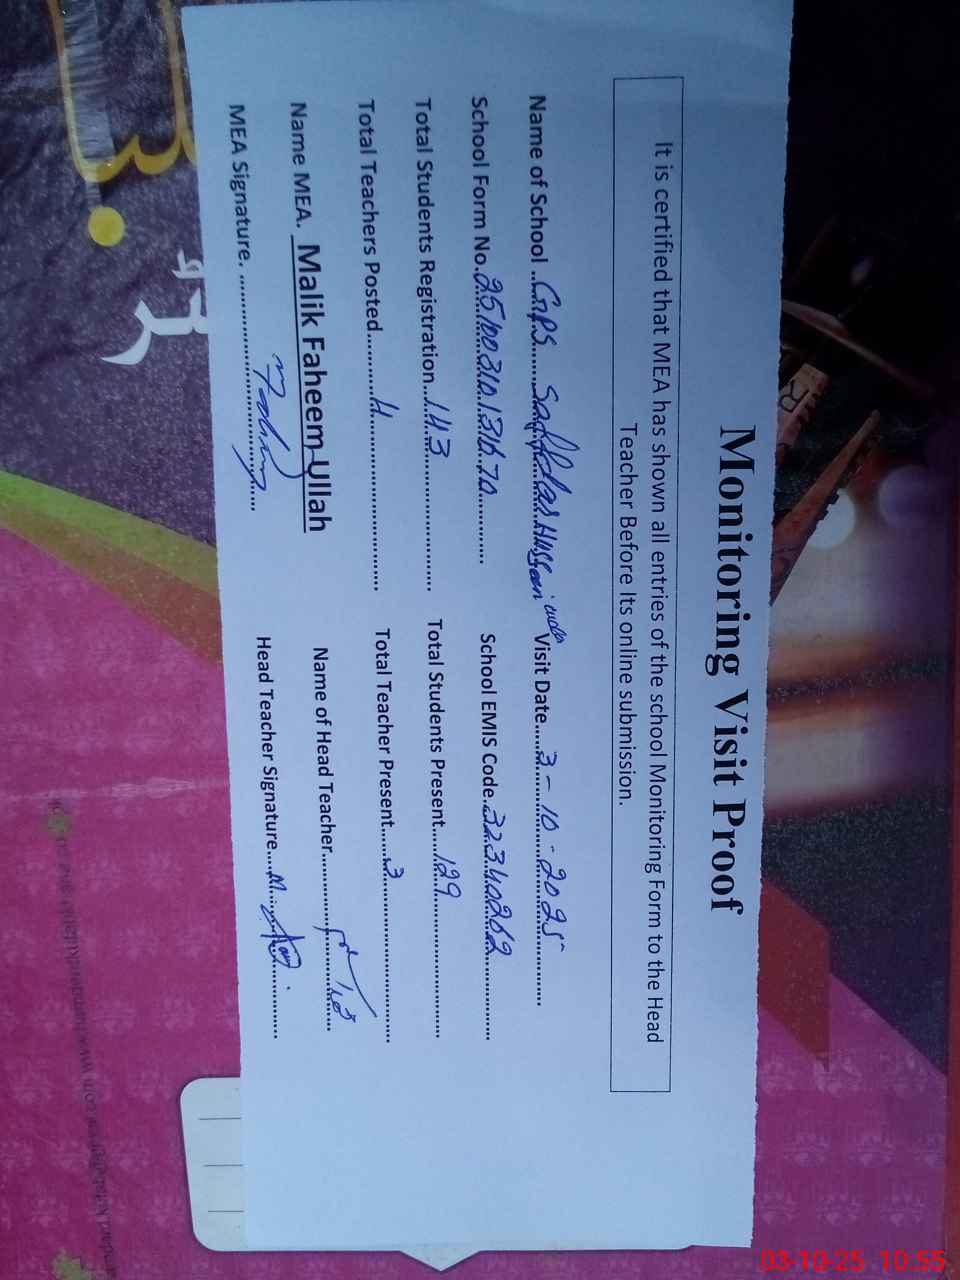 Monitoring Visit Proof
It is certified that MEA has shown all entries of the school Monitoring Form to the Head
Teacher Before Its online submission.
Name of School ..GPS..... Safdar Hussain Visit Date.....3-10-2025............
School Form No.2510031013167 0............ School EMIS Code.32340262............
Total Students Registration...143.................... Total Students Present.....129....................
Total Teachers Posted..........4.................... Total Teacher Present......3....................
Name MEA. Malik Faheem Ullah Name of Head Teacher....................
MEA Signature. .................... Head Teacher Signature....................
ٹر
03-10-25 10:55